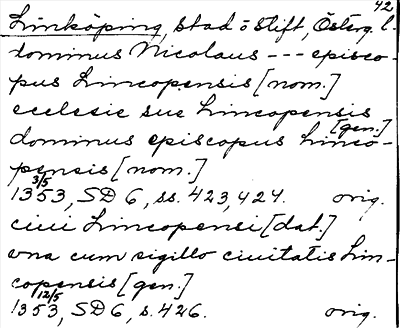 42
Linköping, stad o stift, Österg. l.
dominus Nicolaus --- episco-
pus Lincopensis [nom.]
ecclesie sue Lincopensis
[gen.]
dominus episcopus Linco-
pensis [nom.]
3/5
1353, SD 6, ss. 423, 424. orig.
ciui Lincopensi [dat.]
vna cum sigillo ciuitatis Lin-
copensis [gen.]
12/5
1353, SD 6, s. 426. orig.